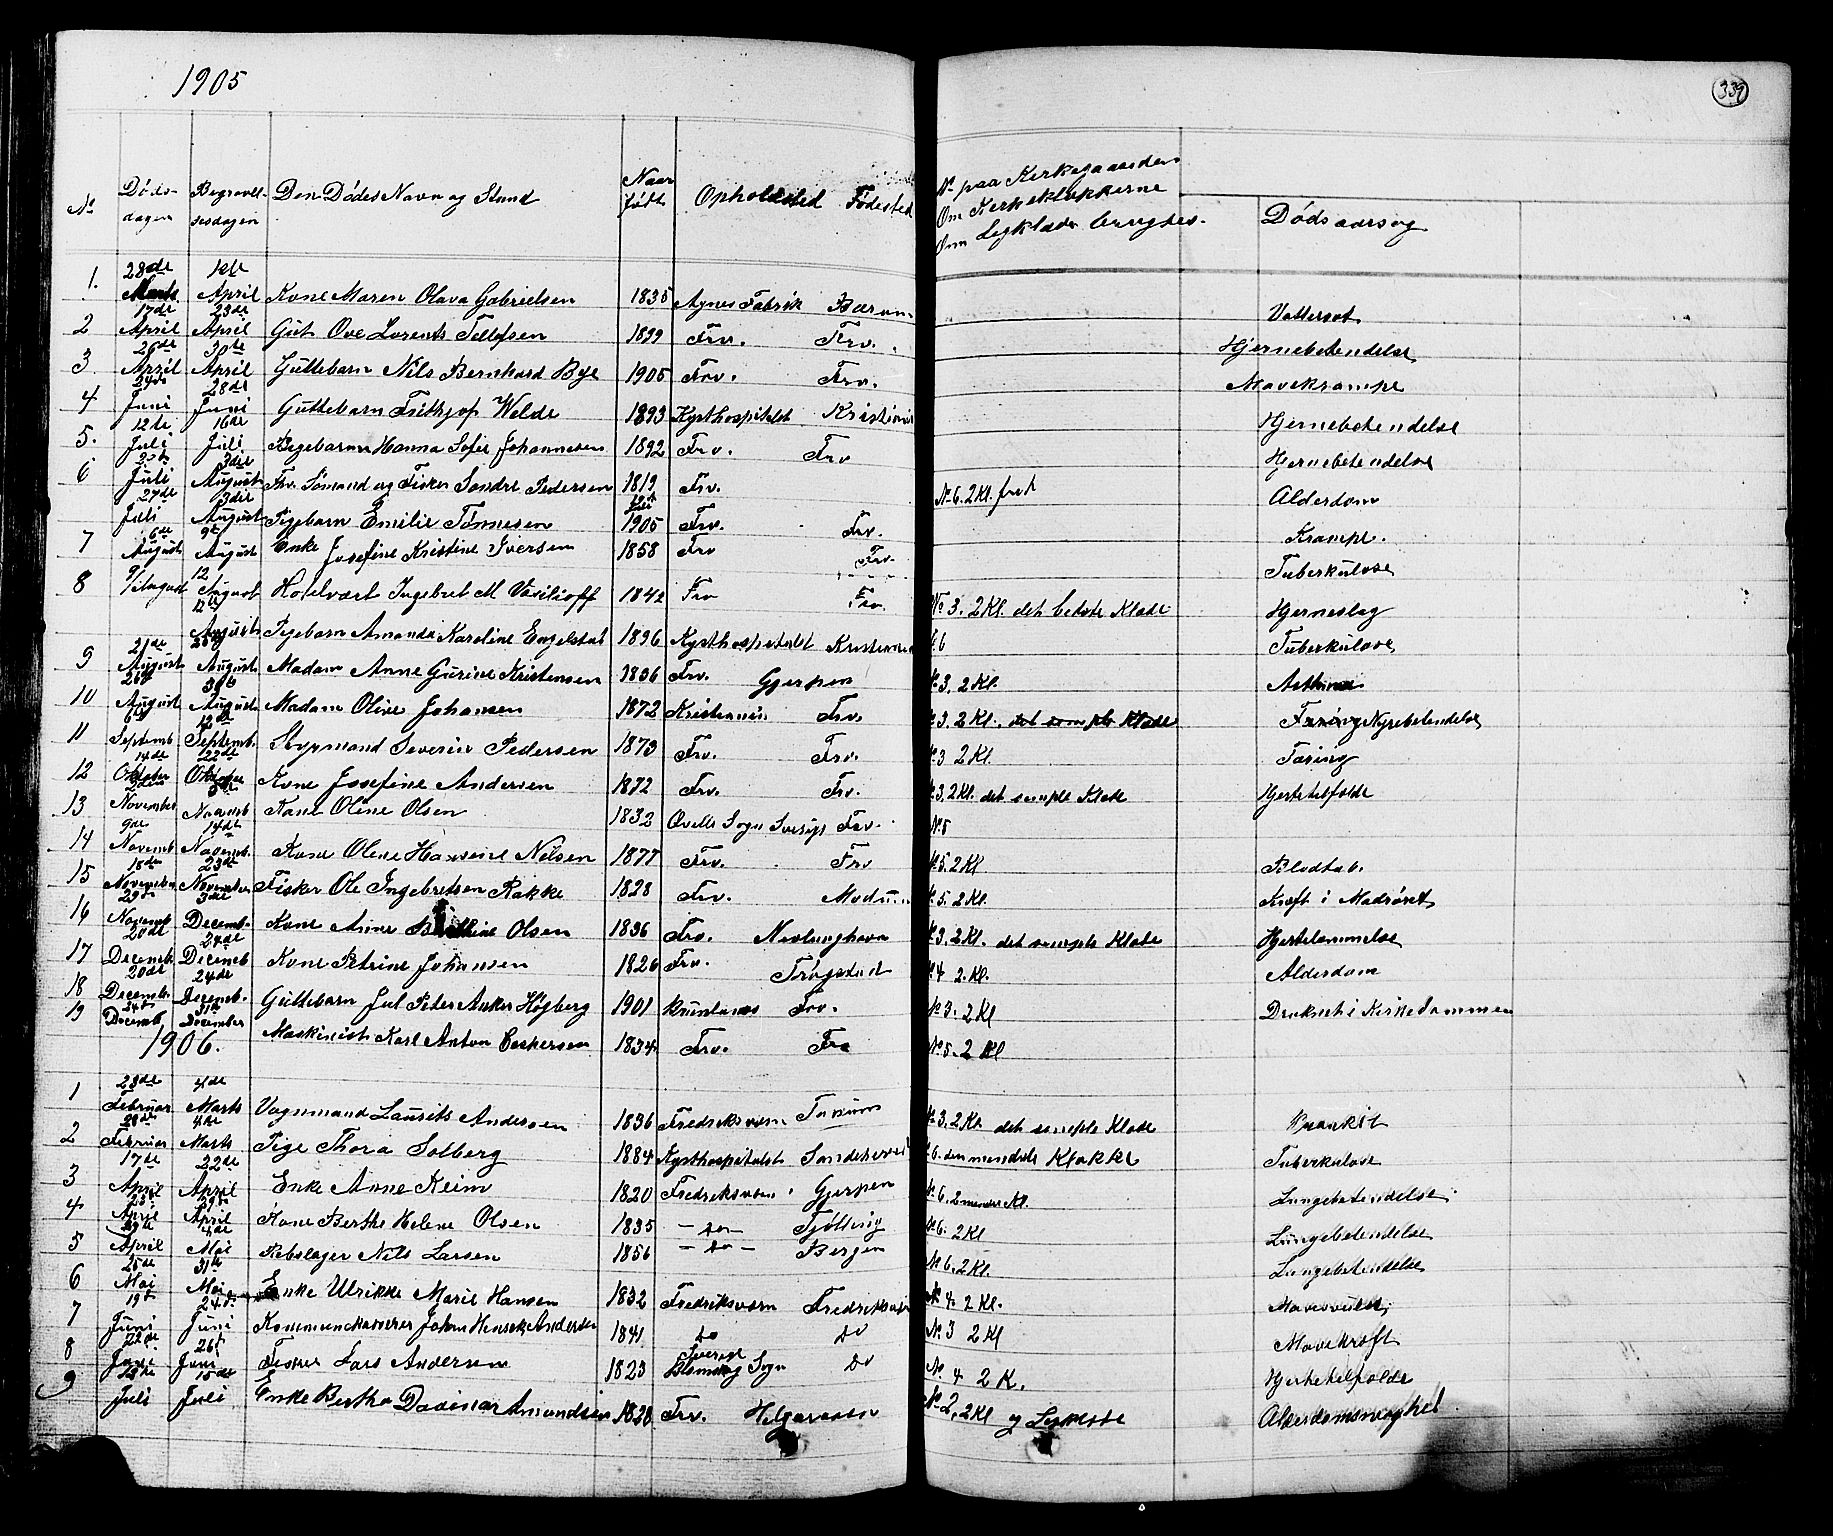 1905
339
No Døds- dagen Begravel- sesdagen Den Dødes Navn og Stand Naar født Opholdsted Fødested No paa Kirkegaarden Om Kirkeklokkerne Om Ligklæder benyttes. Dødsaarsag
1. 28de Marts 1ste April Kone Maren Olava Gabrielsen 1835 Agnes Fabrik Bærum Vattersot
2 17de April 23de April Gut Ove Lorents Tellefsen 1899 Frv. Frv. Hjernebetendelse
3 26de April 30te April Guttebarn Nils Bernhard Bye 1905 Frv. Frv. Mavekrampe
4 24de Juni 28de Juni Guttebarn Frithjof Welde 1893 Kysthospitalet Kristiania Hjernebetendelse
5. 12te Juli 16de Juli Pigebarn Hanna Sofie Johannesen 1892 Frv. Frv Hjernebetendelse
6 Juli 3die August Fhv. Sømand og Fisker Søndre Pedersen 1819 Frv. No 6. 2 Kl. Alderdom
27de Juli 3die August Pigebarn Emilie Tønnesen 1905 Frv. Frv. Krampe.
7 6te August 9de August Enke Josefine Kristine Iversen 1858 Frv Frv. Tuberkulose
8 9/ August 12 August Hotelvært Ingebret M Vasilioff 1842 Frv Frv. No 3. 2 Kl. det bedste Klæde Hjerneslag
August Pigebarn Amanda Karoline Engelstad 1896 Kysthospitalet Kristiania 6 Tuberkulose
9 21de August August Madam Anne Gurine Kristensen 1836 Frv. Gjerpen No 3. 2 Kl. Asthma
10 26de August 30te August Madam Olive Johansen 1872 Kristiania Frv. No 3. 2 Kl. det simple Klæde Tæring Nyrebetendelse
11 6te Septemb. 12te Septemb. Styrmand Severin Pedersen 1873 Frv. Frv. No 3 2 Kl. Tæring
12 14de Oktober 22de Oktober Kone Josefine Andersen 1872 Frv. Frv. No 3. 2 Kl. det simple Klæde Hjertetilfælde
13 2den November November Kone Oline Olsen 1832 Qville Sogn Sverige Frv. No 5
14 9de Novemb. 14de Novemb. Kone Olene Hansine Nilsen 1877 Frv. Frv No 5. 2 Kl. Blodtab.
15 18de November 23de November Fisker Ole Ingebretsen Rakke 1828 Frv. Modum No 5. 2 Kl. Kræft i Madrøret
16 29de Novemb 3die Decemb. Kone Anne Olsen 1836 Frv. Nevlunghavn No 3. 2 Kl. det simple Klæde Hjertelammelse
17 20de Decemb. 24de Decemb Kone Petrine Johansen 1826 Frv. Trøgstad No 4 2. Kl. Alderdom
18 20de Decemb. 24de Decemb. Guttebarn Jul Peter Anker Høgberg 1901 Frv. No 3. 2 Kl Druknet i Kirkedammen
19 24de Decemb. 31te December Maskinist Karl Anton Caspersen 1834 Frv. Frv No 5. 2 Kl
1906.
1 28de Februar 4de Marts Vognmand Laurits Andersen 1836 Fredriksværn Tanum No 3. 2 Kl. det simple Klæde
2 28de Februar 4de Marts Pige Thora Solberg 1884 Kysthospitalet Sandeherred No 6. den mindste Klokke Tuberkulose
3 17de April 22de April Enke Anne Keim 1820 Fredriksværn Gjerpen No 6. 2 mindre Kl. Lungebetendelse
4 25de April 29de April Kone Berthe Helene Olsen 1835 - Do - Tjølling No 6. 2 Kl Lungebetendelse
5 April Mai Rebslager Nils Larsen 1856 - Do - Bergen No 6. 2 Kl. Lungebetendelse
6 25de Mai 31te Mai Enke Ulrikke Marie Hansen 1832 Fredriksværn Fredriksværn No 4. 2 Kl.
7 19de Juni 24de Juni Kanonenerkaverer Johan Henrik Andersen 1841 Do Do No 3 2 Kl Mavekræft
8 22de Juni 26de Juni Fisker Lars Andersen 1823 Sverige Sogn Do No. 4 2 K. Hjertetilfælde
9 13te Juli 15de Juli Enke Berthe Davinar Amundsen 1828 Frv. Helgeraaen No 2, 2 Kl og Alderdomsvaghet